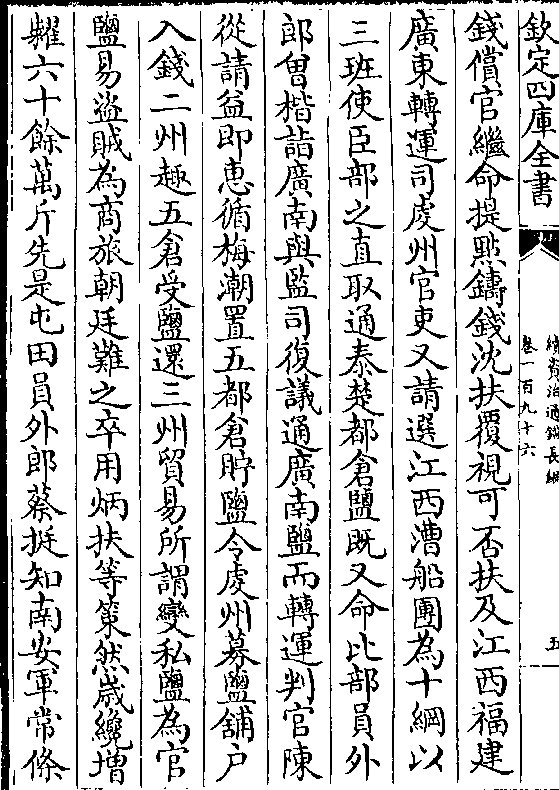 欽定四庫全書
續資治通鑑長編
卷一百九十六
五
錢償官繼命提㸃鑄錢沈扶覆視可否扶及江西福建
廣東轉運司䖍州官吏又請選江西漕船團為十綱以
三班使臣部之直取通泰楚都倉鹽既又命比部員外
郎曾楷詣廣南與監司復議通廣南鹽而轉運判官陳
從請益即惠循梅潮置五都倉貯鹽令䖍州募鹽舖户
入錢二州趣五倉受鹽還三州貿易所謂變私鹽為官
鹽易盜賊為商旅朝廷難之卒用炳扶等策然歲纔增
糶六十餘萬斤先是屯田員外郎蔡挺知南安軍常條